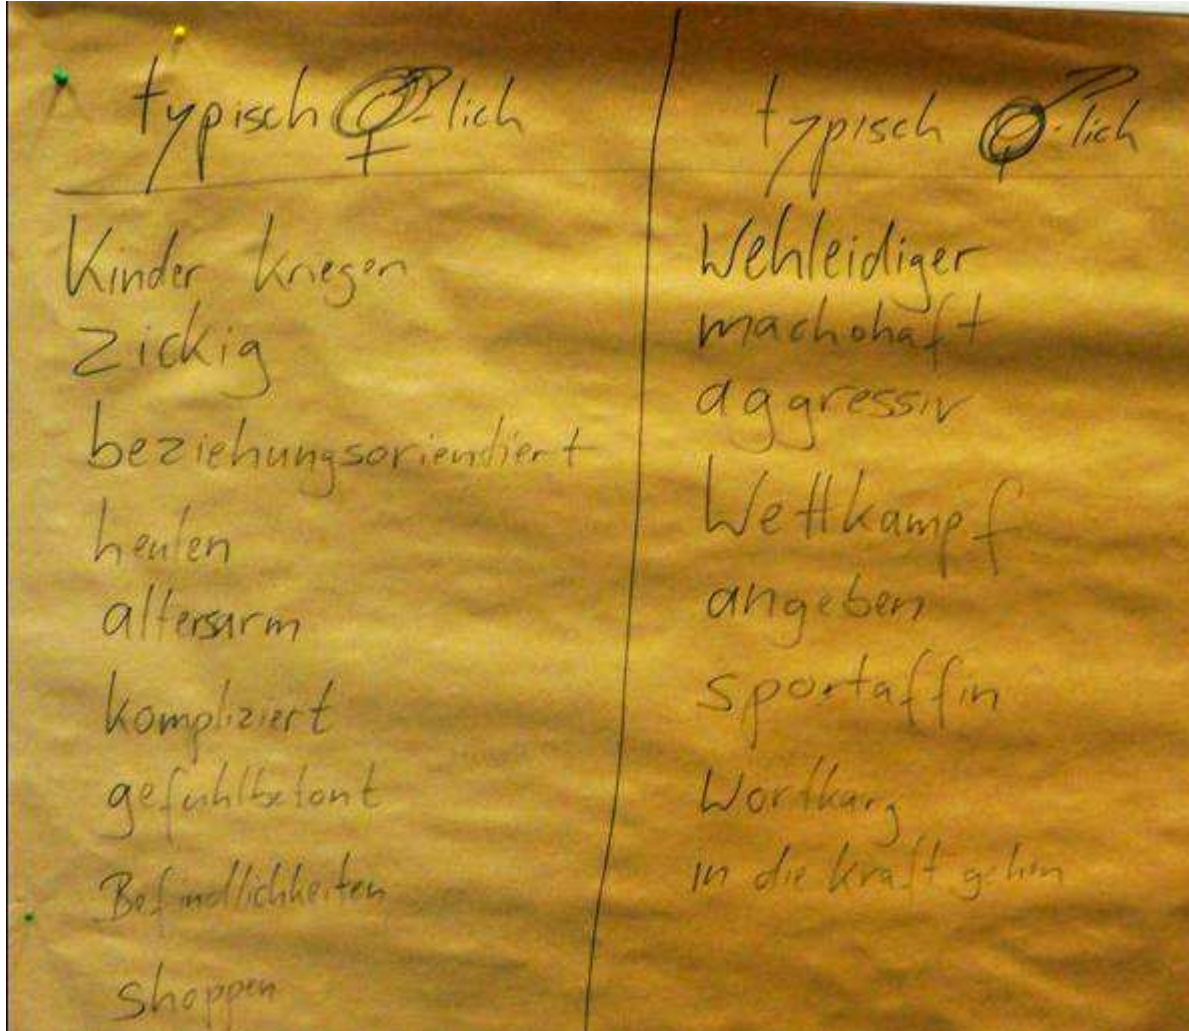 typisch ♀-lich
Kinder kriegen
zickig
beziehungsoriendiert
heulen
altersarm
kompliziert
gefühlbetont
Befindlichkeiten
shoppen
typisch ♂-lich
Wehleidiger
machohaft
aggressiv
Wettkampf
angeben
sportaffin
Wortkarg
in die kraft gehen